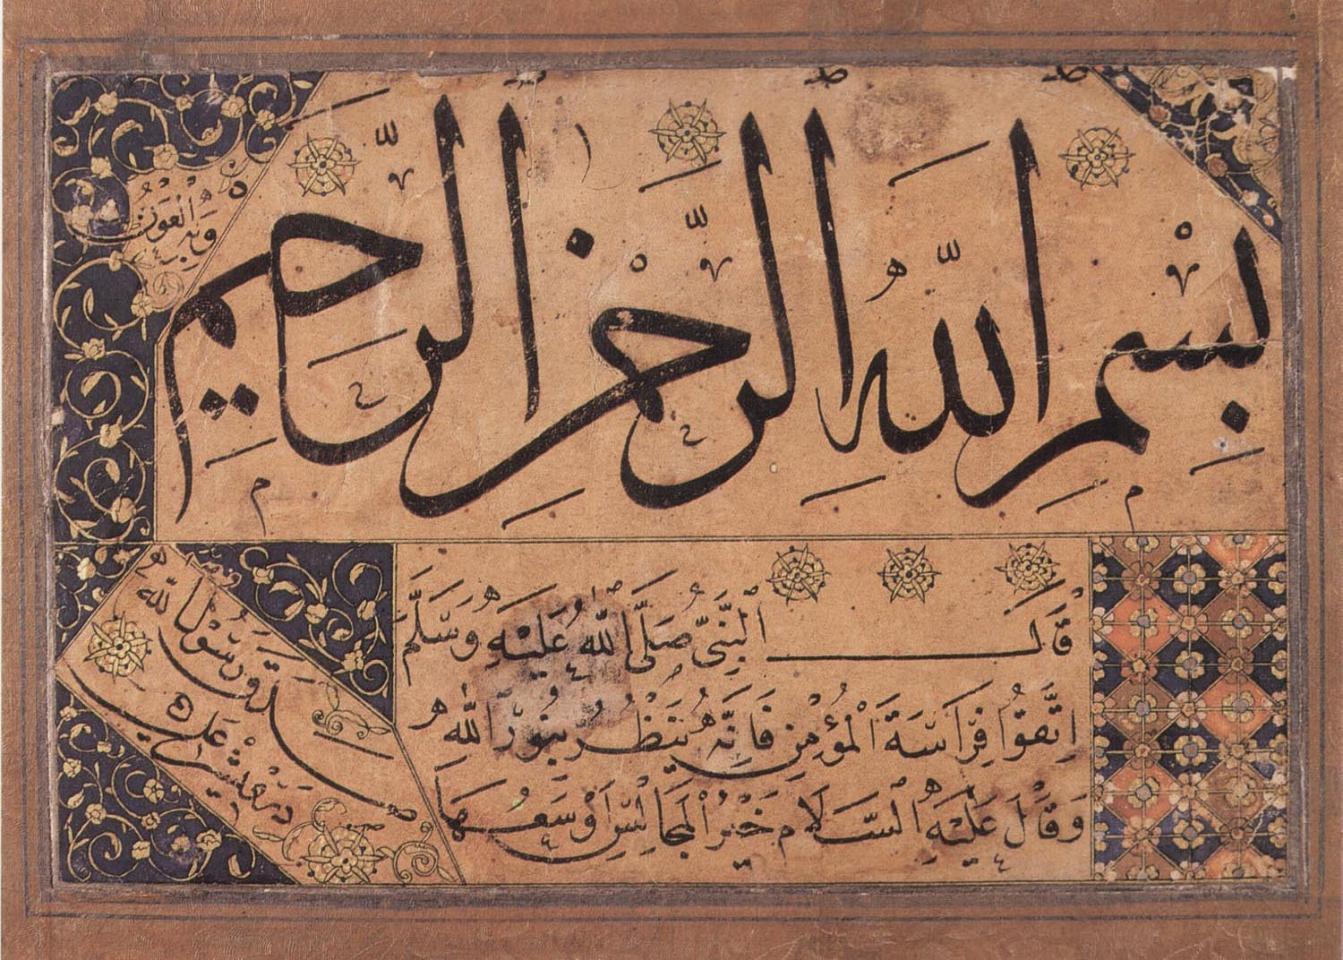 بِسْمِ اللّٰهِ الرَّحْمٰنِ الرَّحِيمِ
وَبِهِ الْعَوْنُ
قَالَ النَّبِيُّ صَلَّى اللّٰهُ عَلَيْهِ وَسَلَّمَ
اِتَّقُوا فِرَاسَةَ الْمُؤْمِنِ فَاِنَّهُ يَنْظُرُ بِنُورِ اللّٰهِ
وَقَالَ عَلَيْهِ السَّلَام خَيْرُ الْمَجَالِسِ اَوْسَعُهَا
صدق رسول الله